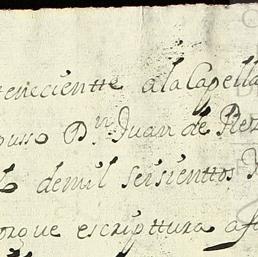 teneciente ala Capella
puso Dn Juan de
demil seisienttos
porque escripttura